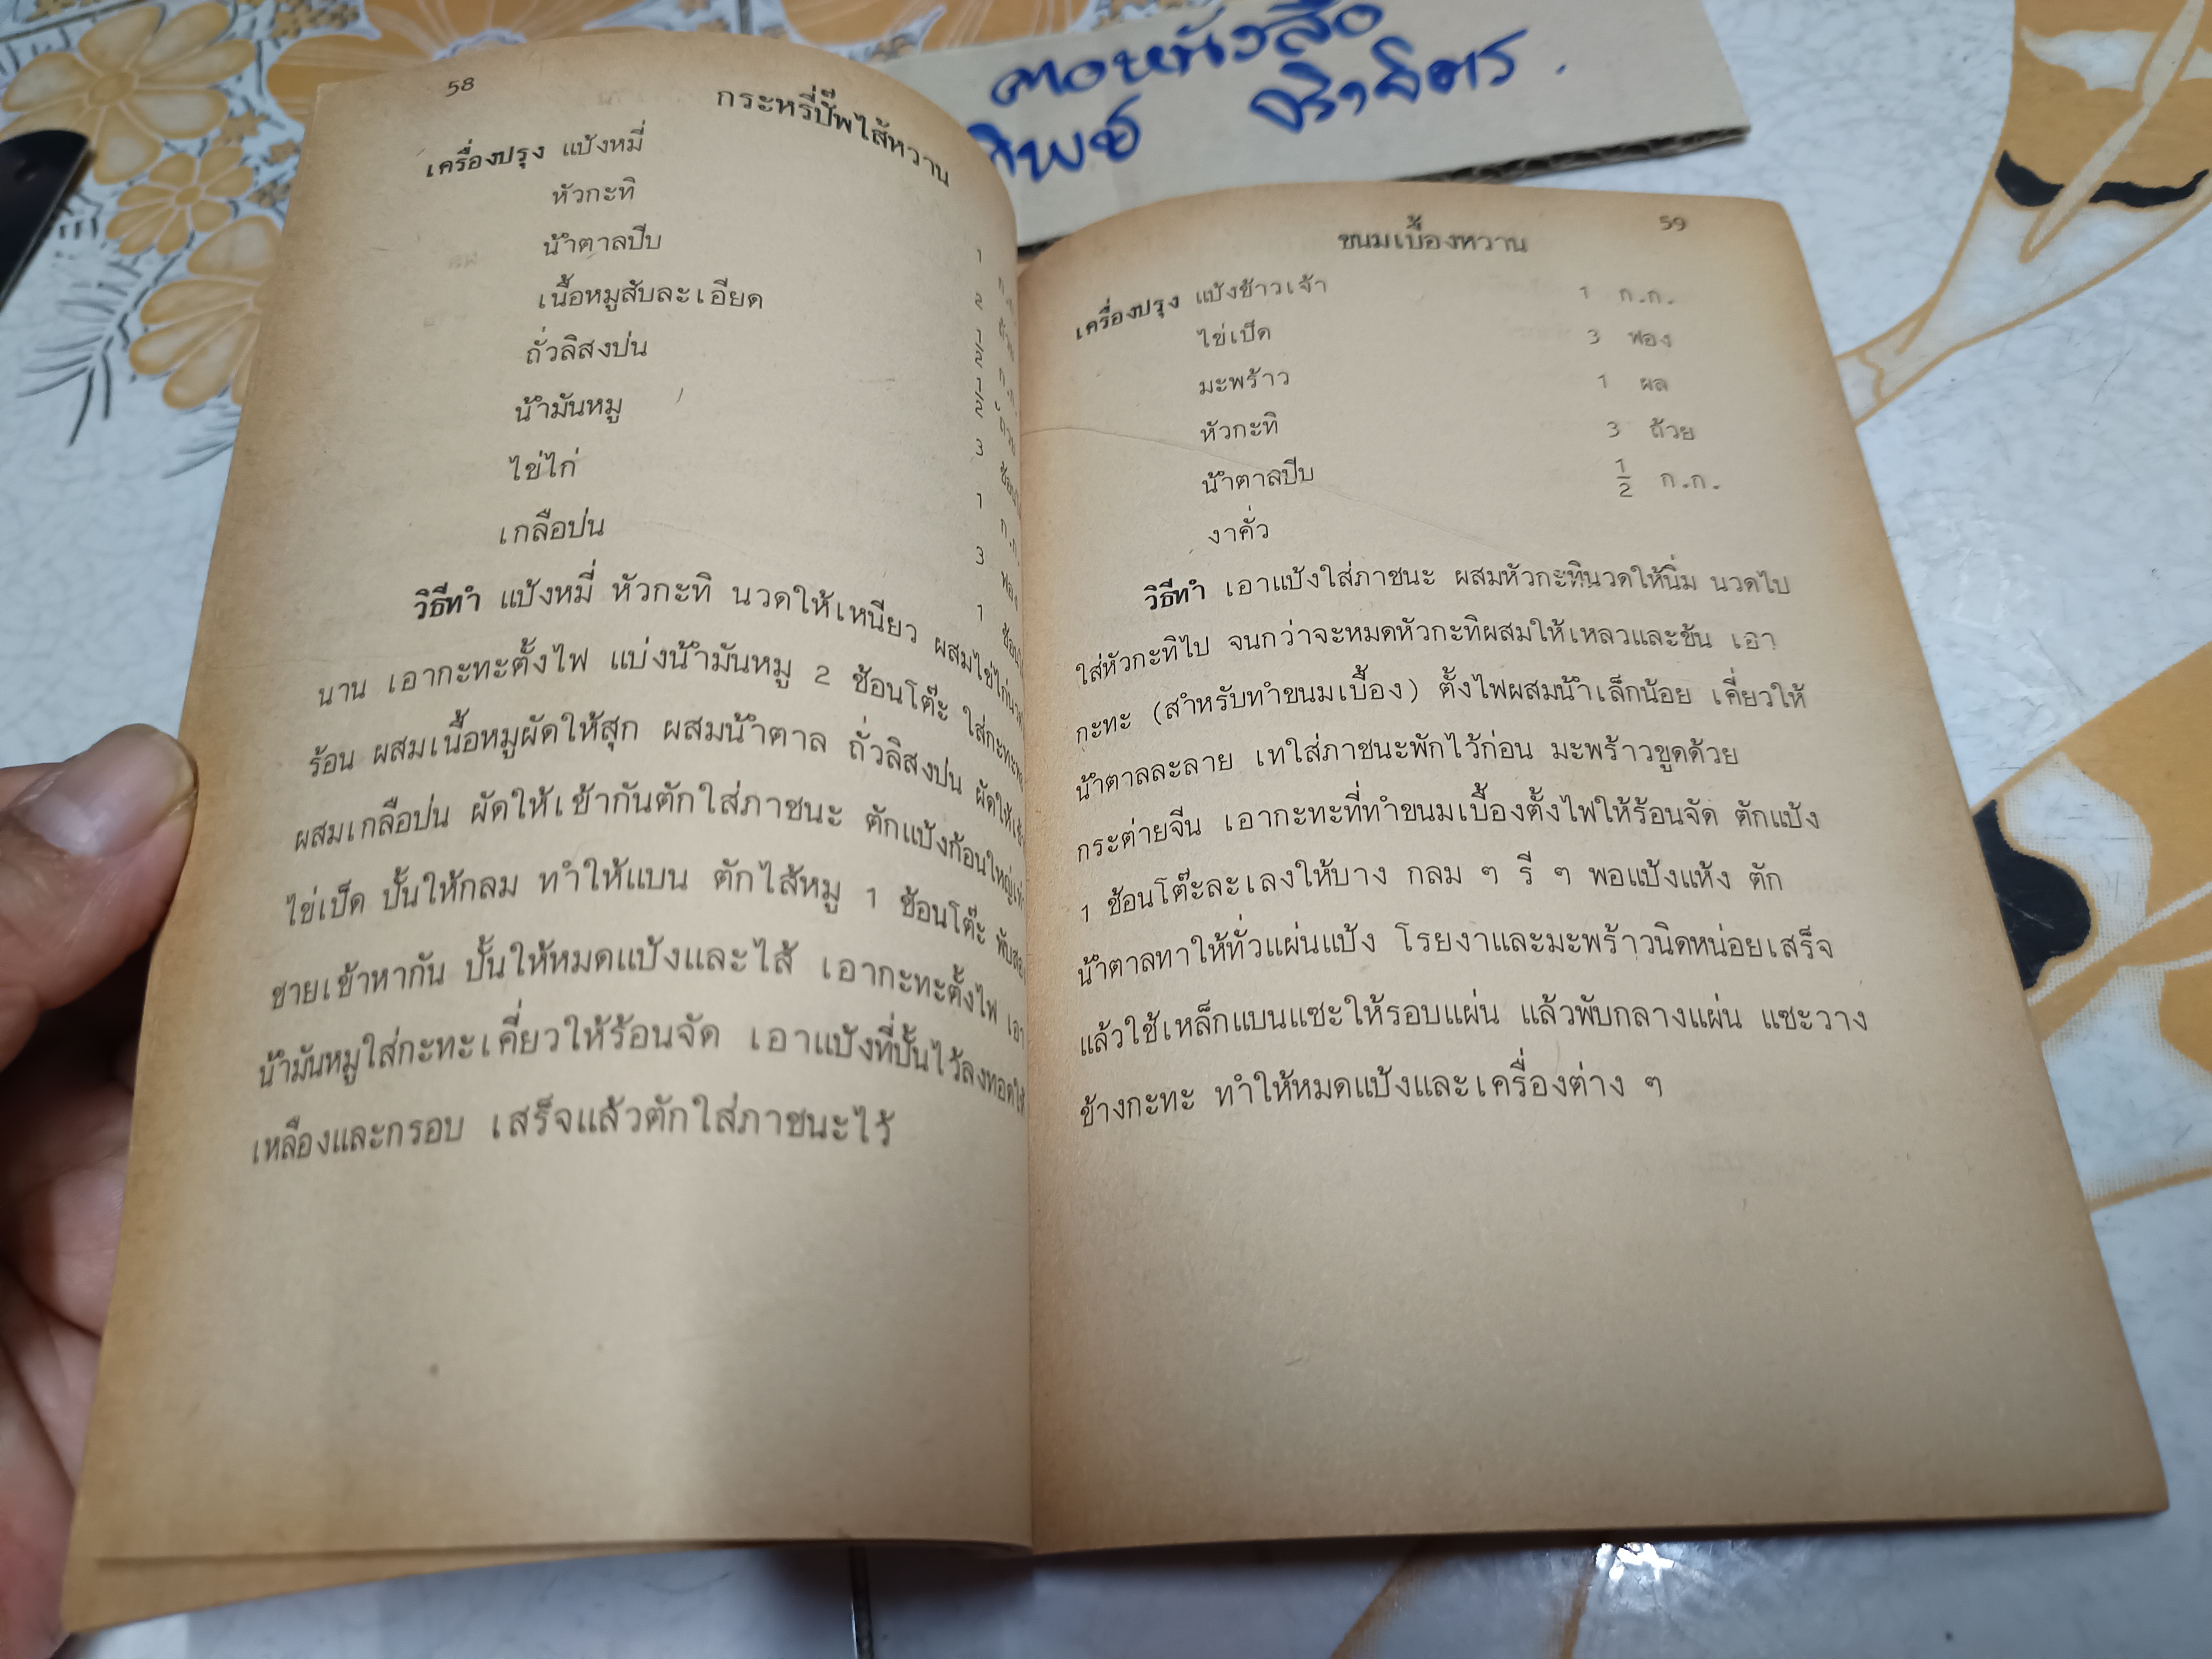 คอหนังสือ
58
กระหรี่ปั๊พไส้หวาน
เครื่องปรุง แป้งหมี่ 1
หัวกะทิ
น้ำตาลปีบ
เนื้อหมูสับละเอียด
ถั่วลิสงป่น 3
น้ำมันหมู 1
ไข่ไก่ 3 ฟอง
เกลือป่น 1
วิธีทำ แป้งหมี่ หัวกะทิ นวดให้เหนียว ผสมไข่ไก่นวด
นาน เอากะทะตั้งไฟ แบ่งน้ำมันหมู 2 ช้อนโต๊ะ ใส่กะทะพอ
ร้อน ผสมเนื้อหมูผัดให้สุก ผสมน้ำตาล ถั่วลิสงป่น ผัดให้
ผสมเกลือป่น ผัดให้เข้ากันตักใส่ภาชนะ ตักแป้งก้อนใหญ่
ไข่เป็ด ปั้นให้กลม ทำให้แบน ตักไส้หมู 1 ช้อนโต๊ะ
ชายเข้าหากัน ปั้นให้หมดแป้งและไส้ เอากะทะตั้งไฟ เอา
น้ำมันหมูใส่กะทะเคี่ยวให้ร้อนจัด เอาแป้งที่ปั้นไว้ลงทอดให้
เหลืองและกรอบ เสร็จแล้วตักใส่ภาชนะไว้
59
ขนมเบื้องหวาน
เครื่องปรุง แป้งข้าวเจ้า 1 ก.ก.
ไข่เป็ด 3 ฟอง
มะพร้าว 1 ผล
หัวกะทิ 3 ถ้วย
น้ำตาลปีบ 1/2 ก.ก.
งาคั่ว
วิธีทำ เอาแป้งใส่ภาชนะ ผสมหัวกะทินวดให้นิ่ม นวดไป
ใส่หัวกะทิไป จนกว่าจะหมดหัวกะทิผสมให้เหลวและข้น เอา
กะทะ (สำหรับทำขนมเบื้อง) ตั้งไฟผสมน้ำเล็กน้อย เคี่ยวให้
น้ำตาลละลาย เทใส่ภาชนะพักไว้ก่อน มะพร้าวขูดด้วย
กระต่ายจีน เอากะทะที่ทำขนมเบื้องตั้งไฟให้ร้อนจัด ตักแป้ง
1 ช้อนโต๊ะละเลงให้บาง กลม ๆ รี ๆ พอแป้งแห้ง ตัก
น้ำตาลทาให้ทั่วแผ่นแป้ง โรยงาและมะพร้าวนิดหน่อยเสร็จ
แล้วใช้เหล็กแบนแซะให้รอบแผ่น แล้วพับกลางแผ่น แซะวาง
ข้างกะทะ ทำให้หมดแป้งและเครื่องต่าง ๆ